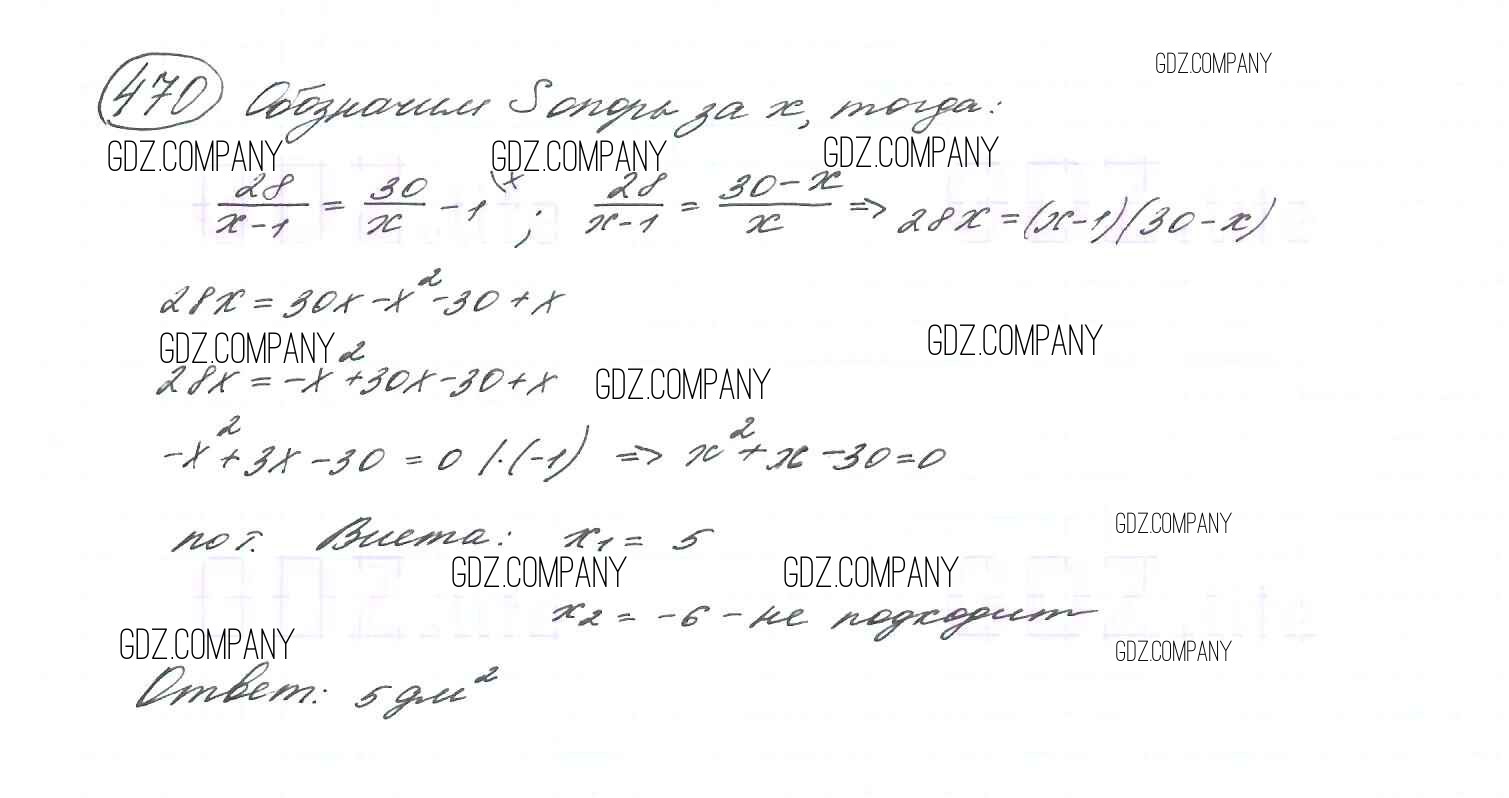 GDZ.COMPANY
470 Обозначим S опоры за x, тогда:
GDZ.COMPANY GDZ.COMPANY GDZ.COMPANY
28/(x-1) = 30/x - 1 \x ; 28/(x-1) = (30-x)/x => 28x = (x-1)(30-x)
28x = 30x - x² - 30 + x
GDZ.COMPANY GDZ.COMPANY
28x = -x² + 30x - 30 + x GDZ.COMPANY
-x² + 3x - 30 = 0 /·(-1) => x² + x - 30 = 0
GDZ.COMPANY
по т. Виета: x₁ = 5
GDZ.COMPANY GDZ.COMPANY
x₂ = -6 - не подходит
GDZ.COMPANY GDZ.COMPANY
Ответ: 5 дм²